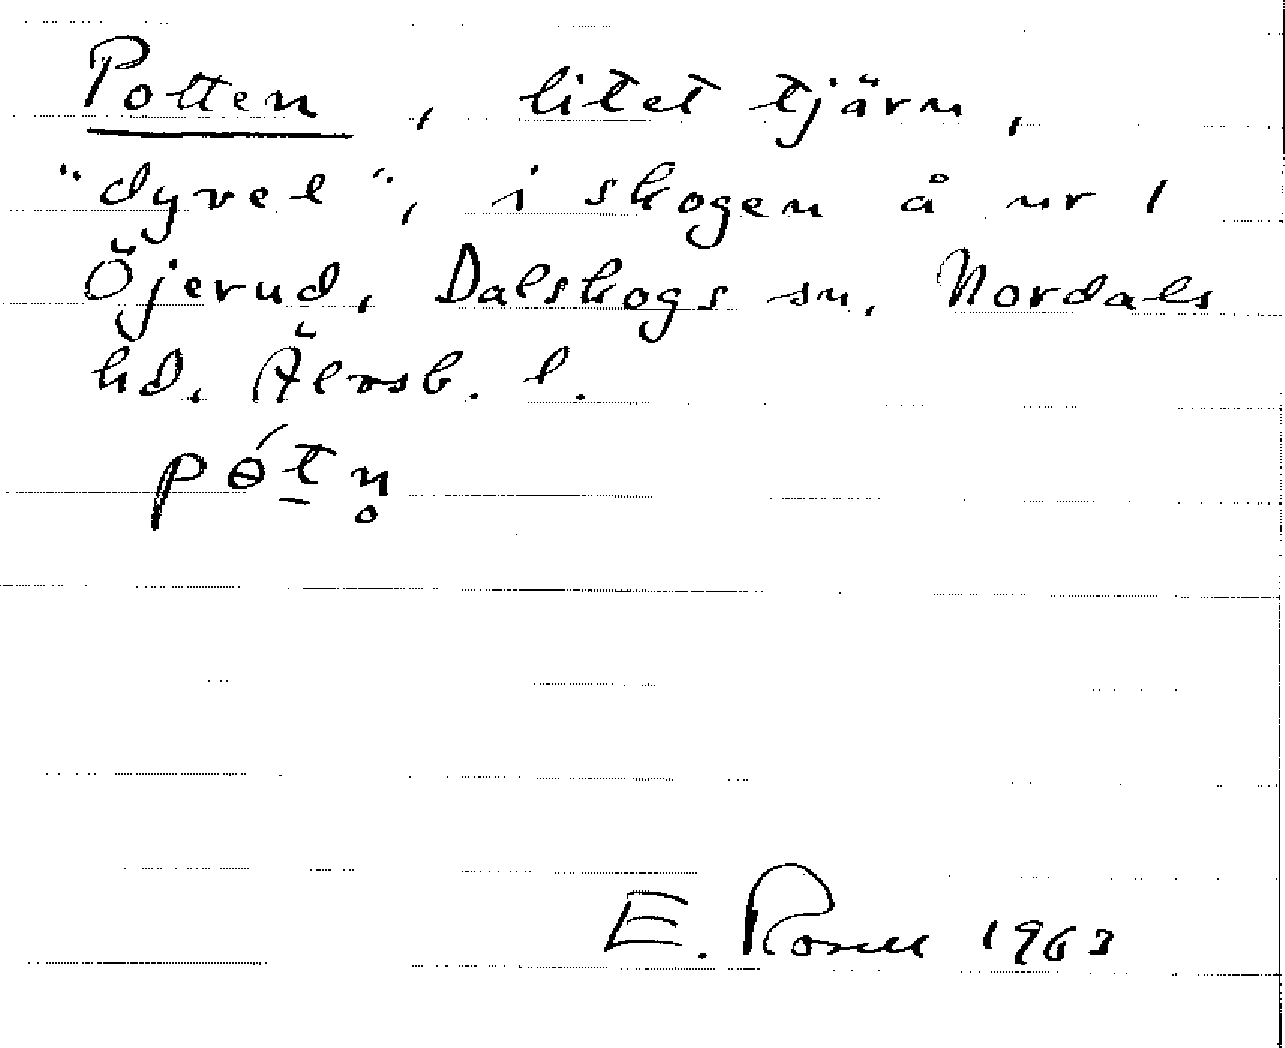 Potten, litet tjärn,
"dyvel", i skogen å nr 1
Öjerud, Dalskogs sn, Nordals
hd. Älvsb. l.
pɵ́t̲n̥
E. Rosell 1963